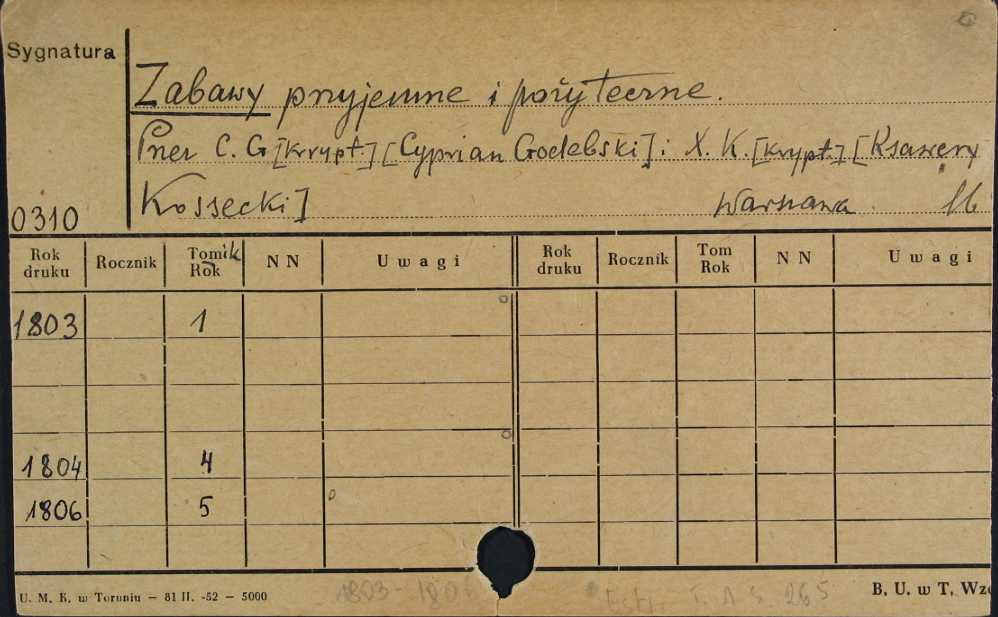 Sygnatura
Zabawy przyjemne i pożyteczne.
Przez C. G [Krypt.] [Cyprian Godebski] i X. K. [Krypt.] [Ksawery
0310 Kossecki] Warszawa. 16
Rok druku Rocznik Tomik Rok N N Uwagi Rok druku Rocznik Tom Rok N N Uwagi
1803 1
1804 4
1806 5
1803-1806 Estr. 265
U. M. K. w Toruniu — 81 II. -52 — 5000 B. U. w T. Wzó